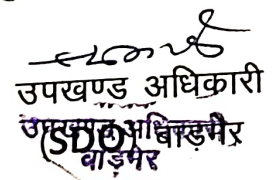 उपखण्ड अधिकारी
(SDO) बाड़मेर
बाड़मेर